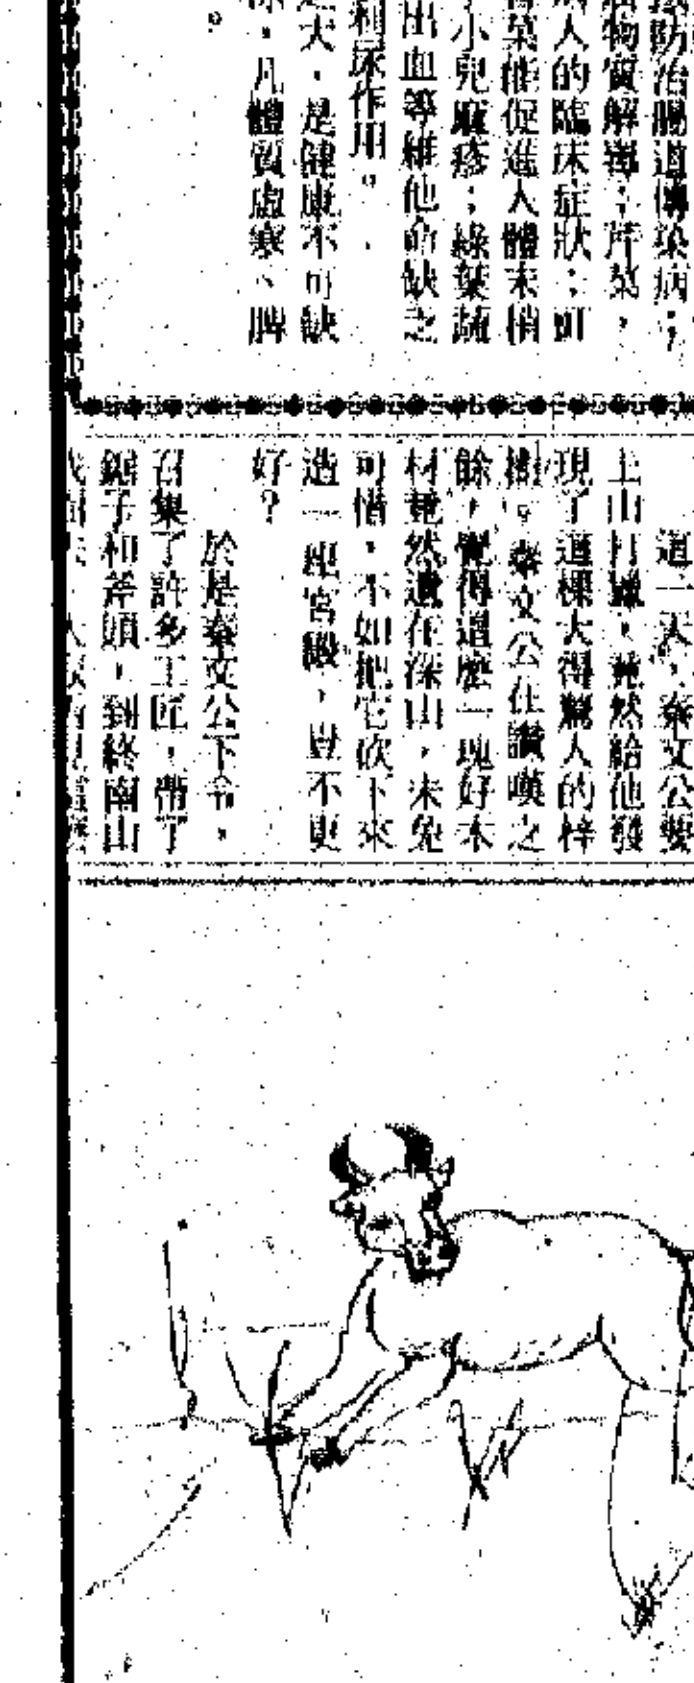 防治腸道傳染病；
物質解毒；芹菜，
人的臨床症狀；
菜能促進人體末梢
小兒麻疹；綠葉蔬
出血等維他命缺之
利尿作用。
大，是健康不可缺
，凡體質虛寒、脾
。
這一天，秦文公要
上山打獵，竟然給他發
現了這棵大得驚人的梓
樹。秦文公在讚嘆之
餘，覺得這麼一塊好木
材竟然遺在深山，未免
可惜，不如把它砍下來
造一座宮殿，豈不更
好？
於是秦文公下令，
召集了許多工匠，帶了
鋸子和斧頭，到終南山